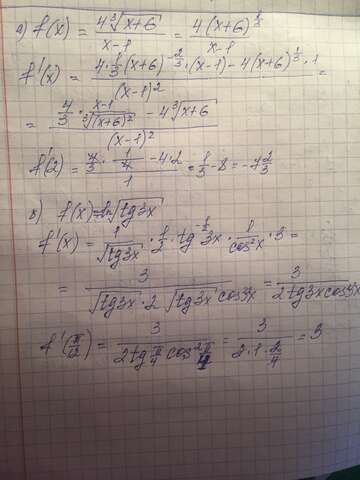 а) f(x) = 4∛(x+6) / (x-1) = 4(x+6)^(1/3) / (x-1)
f'(x) = (4·1/3(x+6)^(-2/3)·(x-1) - 4(x+6)^(1/3)·1) / (x-1)² =
= (4/3 · (x-1)/∛(x+6)² - 4∛(x+6)) / (x-1)²
f'(2) = (4/3 · 1/4 - 4·2) / 1 = 1/3 - 8 = -7 2/3
f(x) = ln√(tg3x)
f'(x) = 1/√(tg3x) · 1/2 · tg^(-1/2)3x · 1/cos²x · 3 =
= 3 / (√(tg3x) · 2√(tg3x) cos²3x) = 3 / (2tg3x cos²3x)
f'(π/12) = 3 / (2tg π/4 cos² π/4) = 3 / (2·1·2/4) = 3